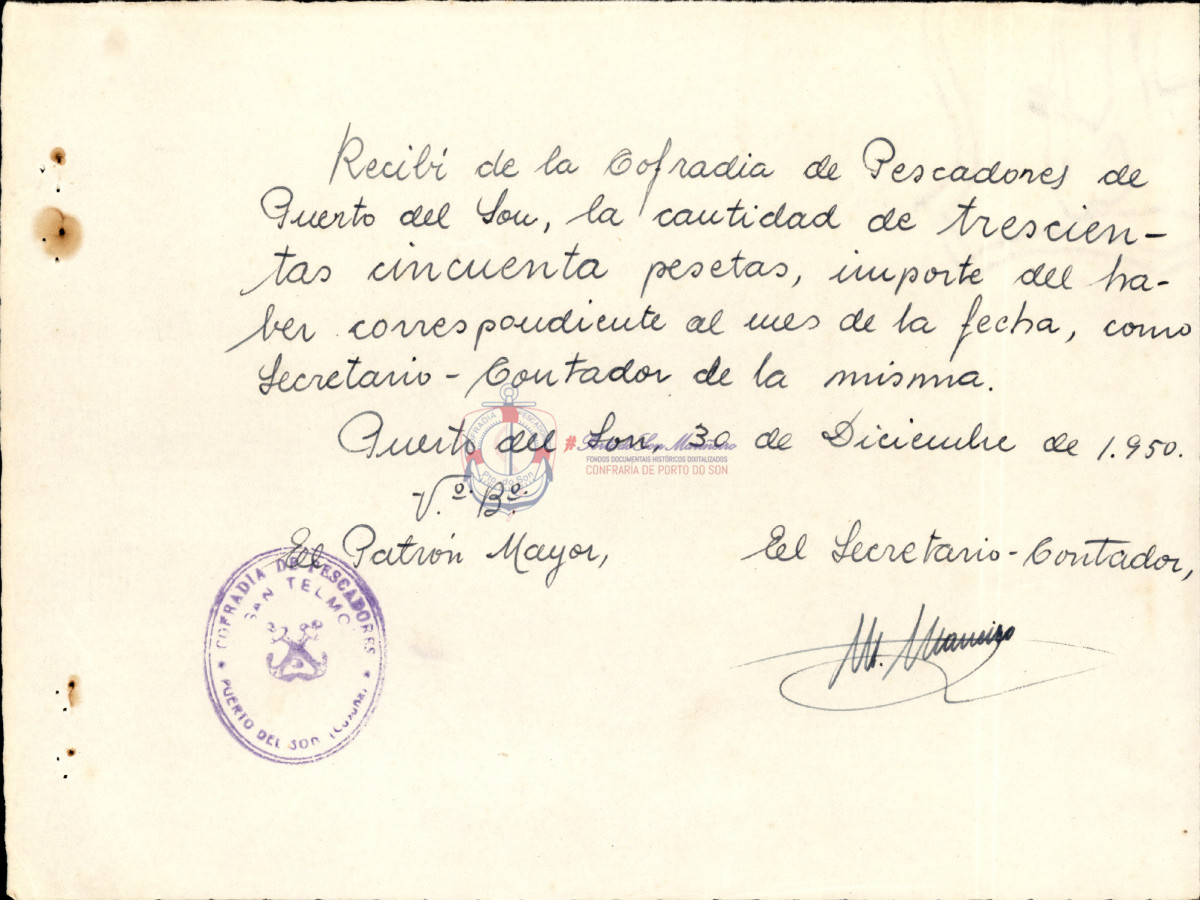 Recibí de la Cofradia de Pescadores de
Puerto del Son, la cantidad de trescien-
tas cincuenta pesetas, importe del ha-
ber correspondiente al mes de la fecha, como
Secretario-Contador de la misma.
Puerto del Son, 30 de Diciembre de 1.950.
FONDOS DOCUMENTAIS HISTÓRICOS DIXITALIZADOS
CONFRARÍA DE PORTO DO SON
V.º Bº.
El Patrón Mayor,
El Secretario-Contador,
COFRADIA DE PESCADORES
SAN TELMO
PUERTO DEL SON
M. Maneiro